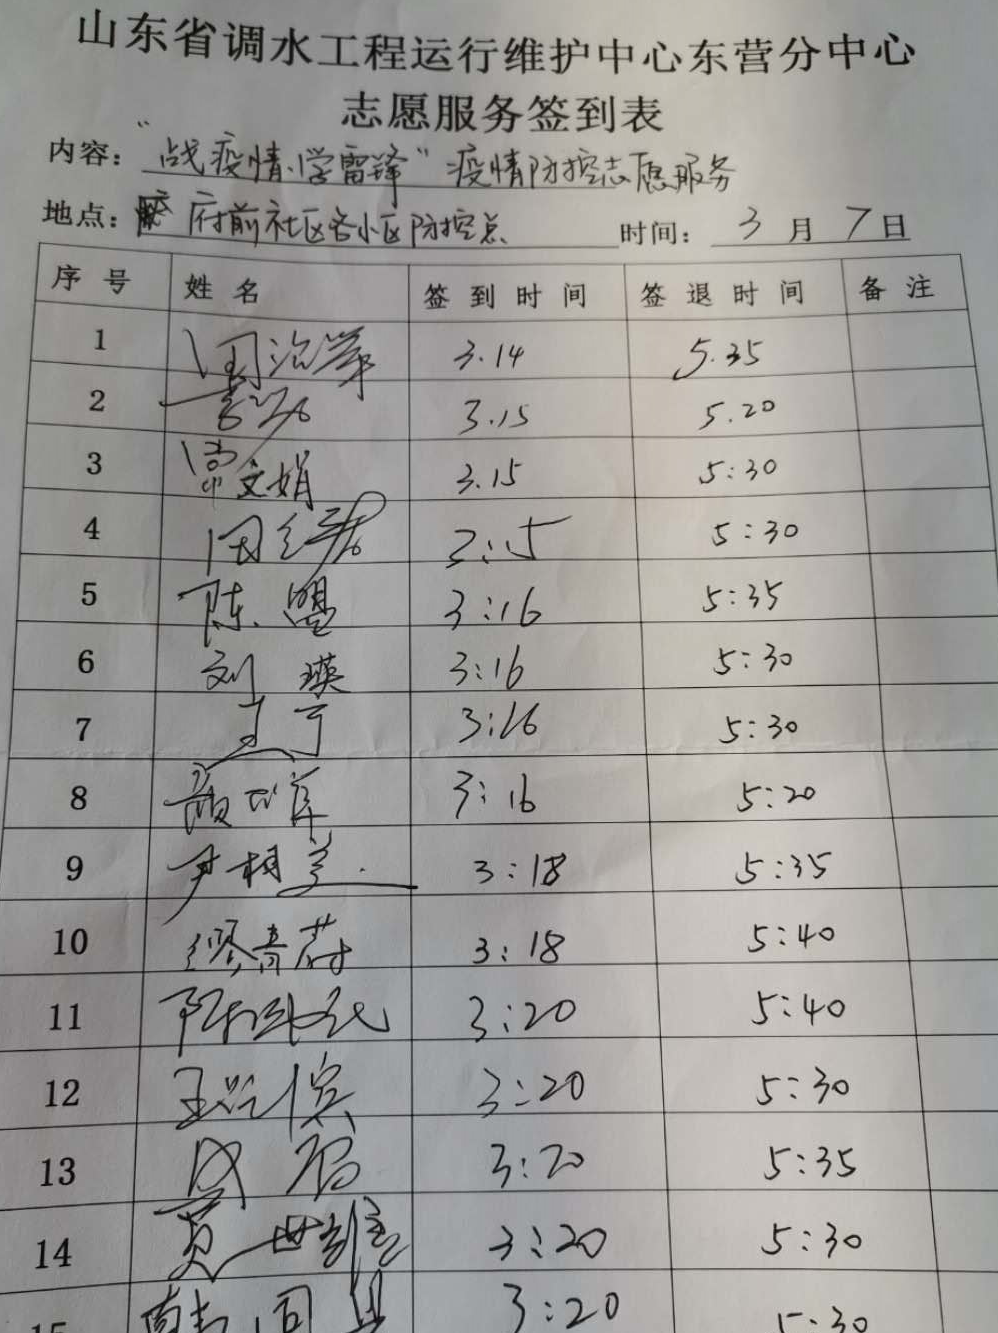 山东省调水工程运行维护中心东营分中心
志愿服务签到表
内容："战疫情、学雷锋"疫情防控志愿服务
地点：府前社区各小区防控点 时间：3月7日
序号 姓名 签到时间 签退时间 备注
1 3.14 5.35
2 3.15 5.20
3 常文娟 3.15 5:30
4 5:30
5 陈盟 3:16 5:35
6 刘瑛 3:16 5:30
7 3:16 5:30
8 3:16 5:20
9 尹相 3:18 5:35
10 缪青蔚 3:18 5:40
11 3:20 5:40
12 王 滨 3:20 5:30
13 3:20 5:35
14 3:20 5:30
15 3:20 5:30